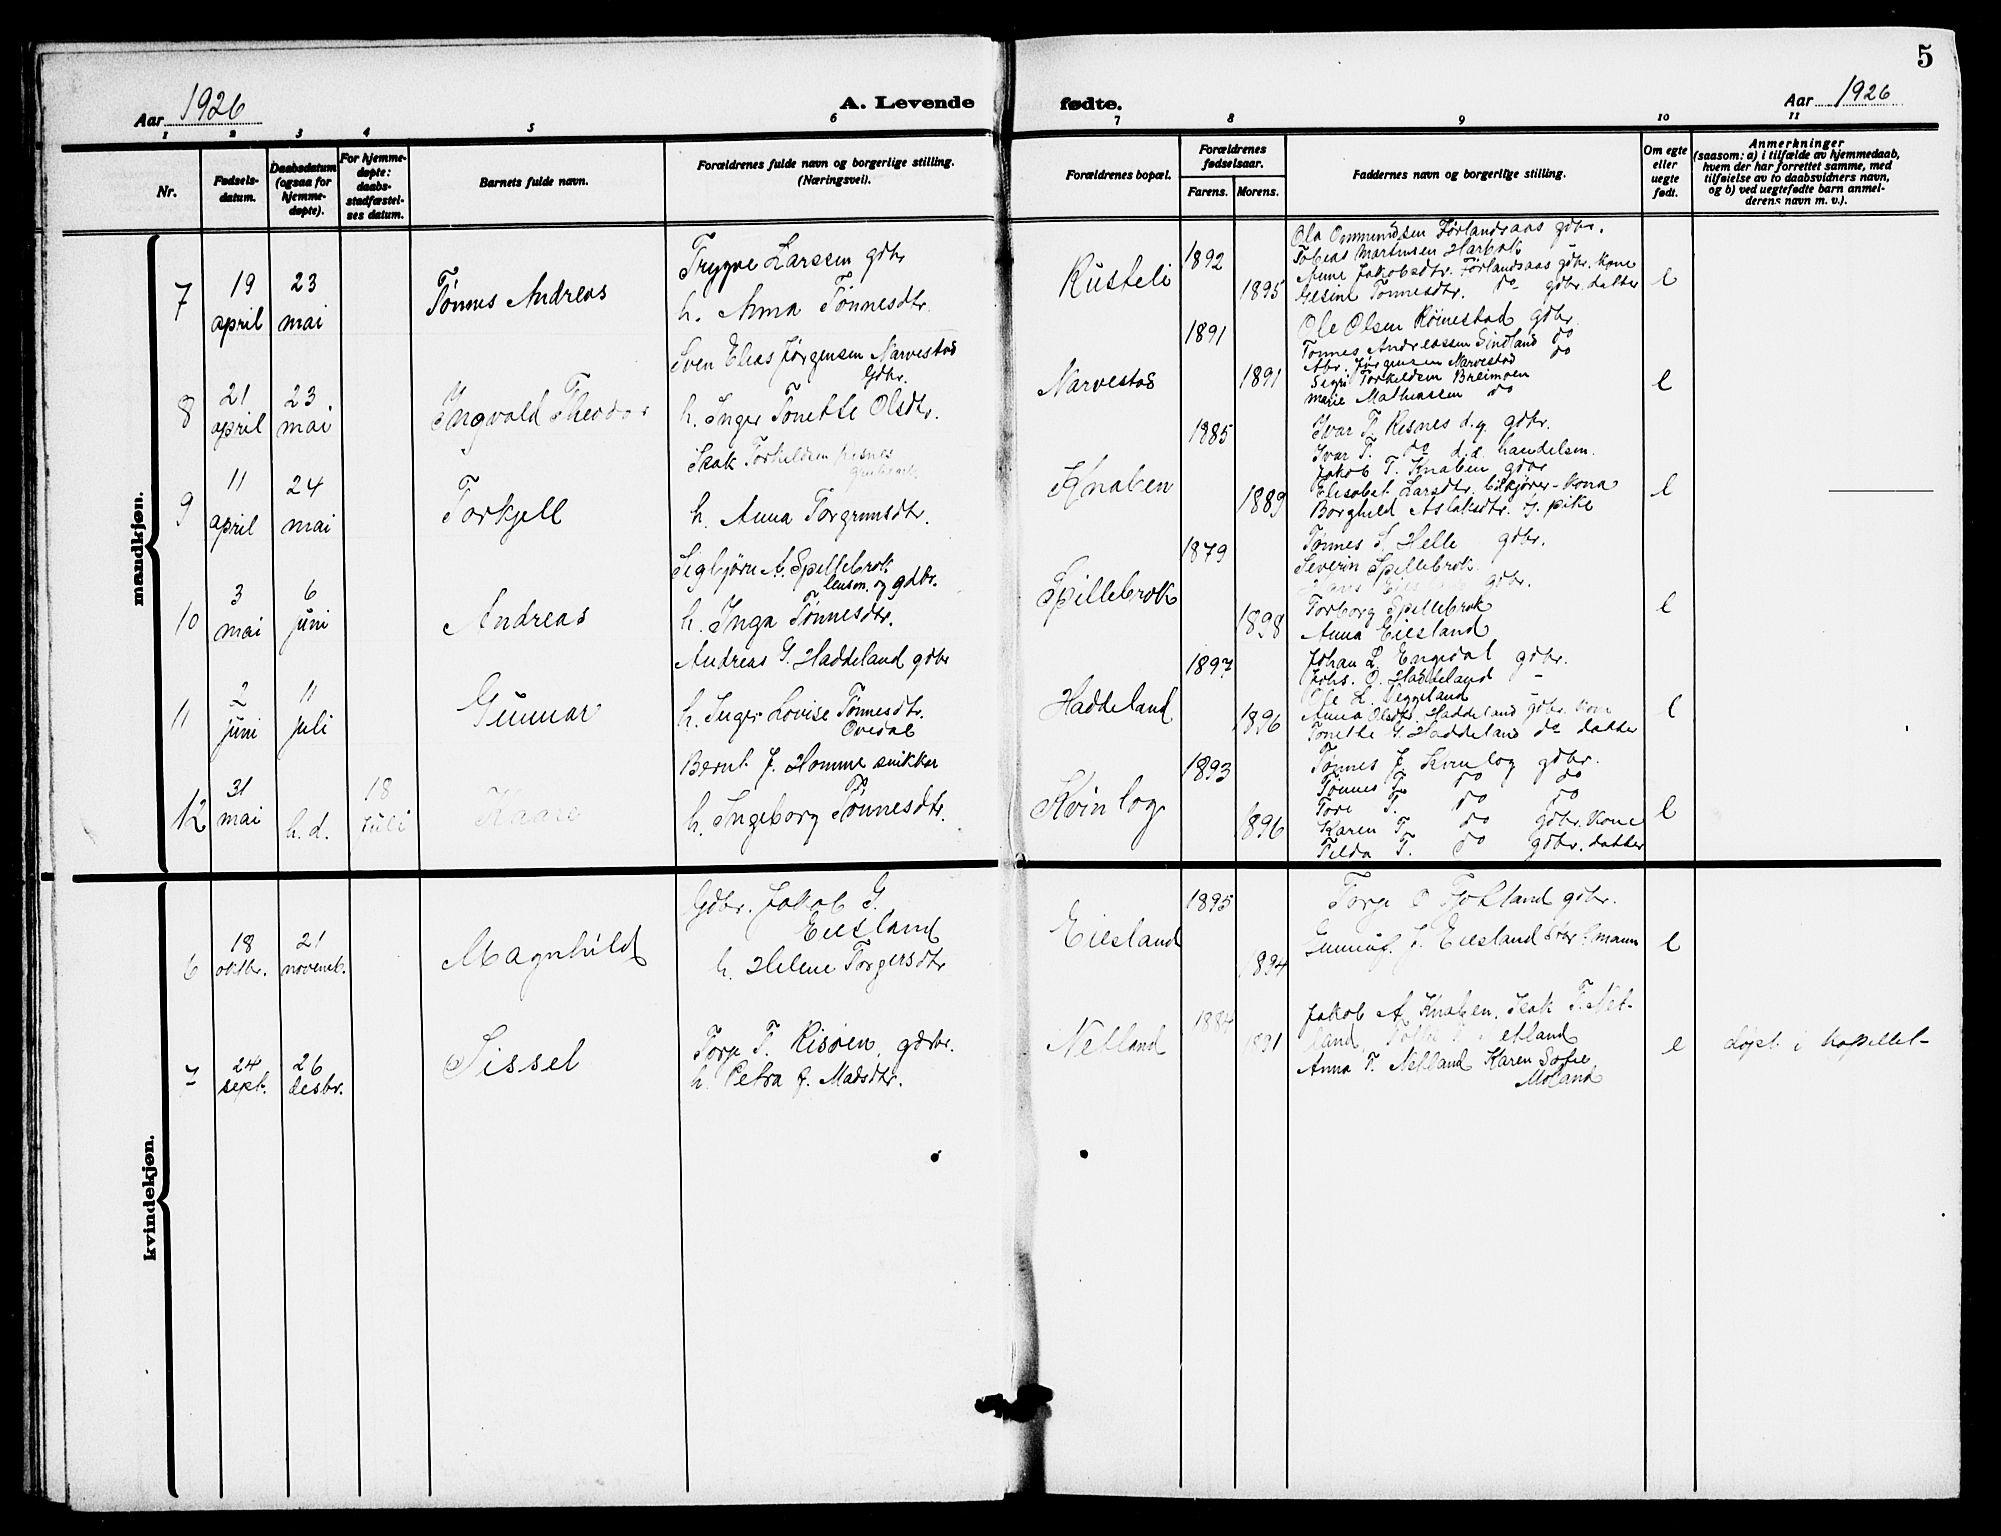 5
Aar 1926
A. Levende fødte.
Aar 1926
1 2 3 4 5 6 7 8 9 10 11
Nr.
Fødsels-
datum.
Daabsdatum
(ogsaa for
hjemme-
døpte).
For hjemme-
døpte:
daabs-
stadfæstel-
ses datum.
Barnets fulde navn.
Forældrenes fulde navn og borgerlige stilling.
(Næringsvei).
Forældrenes bopæl.
Forældrenes
fødselsaar.
Farens. Morens.
Faddernes navn og borgerlige stilling.
Om egte
eller
uegte
født.
Anmerkninger
(saasom: a) i tilfælde av hjemmedaab,
hvem der har forrettet samme, med
tilføielse av to daabsvidners navn,
og b) ved uegtefødte barn anmel-
derens navn m. v.).
mandkjøn.
7
19
april
23
mai
Tønnes Andreas
Trygve Larssen gdbr
h. Anna Tønnesdtr.
Rusteli
1892
1895
Ola Ommundsen Førlandsaas gdbr.
Tobias Martinsen Harbak
Anne Jakobsdtr. Førlandsaas gdbr. kone
Gesine Tønnesdtr. do gdbr. datter
e
8
21
april
23
mai
Ingvald Theodor
Sven Elias Jørgensen Narvestad
Gdbr.
h. Inger Tonette Olsdtr.
Narvestad
1891
1891
Ole Olsen Røinestad gdbr.
Tønnes Andreassen Sindland do
Abr. Jørgensen Narvestad do
Sigri Torkeldsen Breimoen
Marie Mathiassen do
e
9
11
april
24
mai
Torkjell
Isak Torkeldsen Risnes
h. Anna Torgrimsdtr.
Knaben
1885
1889
Ivar T. Risnes d.y. gdbr.
Ivar T. do d.e. handelsm.
Jakob T. Knaben gdbr
Elisabet Larsdtr. bilkjører-kona
Borghild Aslaksdtr. pike
e
10
3
mai
6
juni
Andreas
Sigbjørn A. Spillebrok
lensm. og gdbr.
h. Inga Tønnesdtr.
Spillebrok
1879
1898
Tønnes S. Helle gdbr.
Severin Spillebrok
gdbr.
Torborg Spillebrok
Anna Eiesland
e
11
2
juni
11
juli
Gunnar
Andreas G. Haddeland gdbr
h. Inger Lovise Tønnesdtr.
Ovedal
Haddeland
1897
1896
Johan L. Engedal gdbr.
Johs. O. Haddeland -
Ole L. Veggeland
Anna Olsdtr. Haddeland gdbr. kone
Tonette G. Haddeland do datter
e
12
31
mai
h. d.
18
juli
Kaare
Bernt J. Homme snikker
h. Ingeborg Tønnesdtr.
Kvinlog
1893
1896
Tønnes J. Kvinlog gdbr.
Tønnes T. do do
Tore T. do do
Karen T. do gdbr. kone
Tilda T. do gdbr. datter
e
kvindekjøn.
6
18
oktbr.
21
novemb.
Magnhild
Gdbr. Jakob G.
Eiesland
h. Helene Torgersdtr
Eiesland
1895
1894
Torje O Fjotland gdbr.
Gunnuf. J. Eiesland
e
7
24
sept.
26
desbr.
Sissel
Torje T. Risøen, gdbr.
h. Petra J. Madsdtr.
Netland
1884
1891
Jakob A Knaben, Isak T. Net-
land, Netland
Anna T. Netland Karen Sofie
Moland
e
døpt i kapellet-